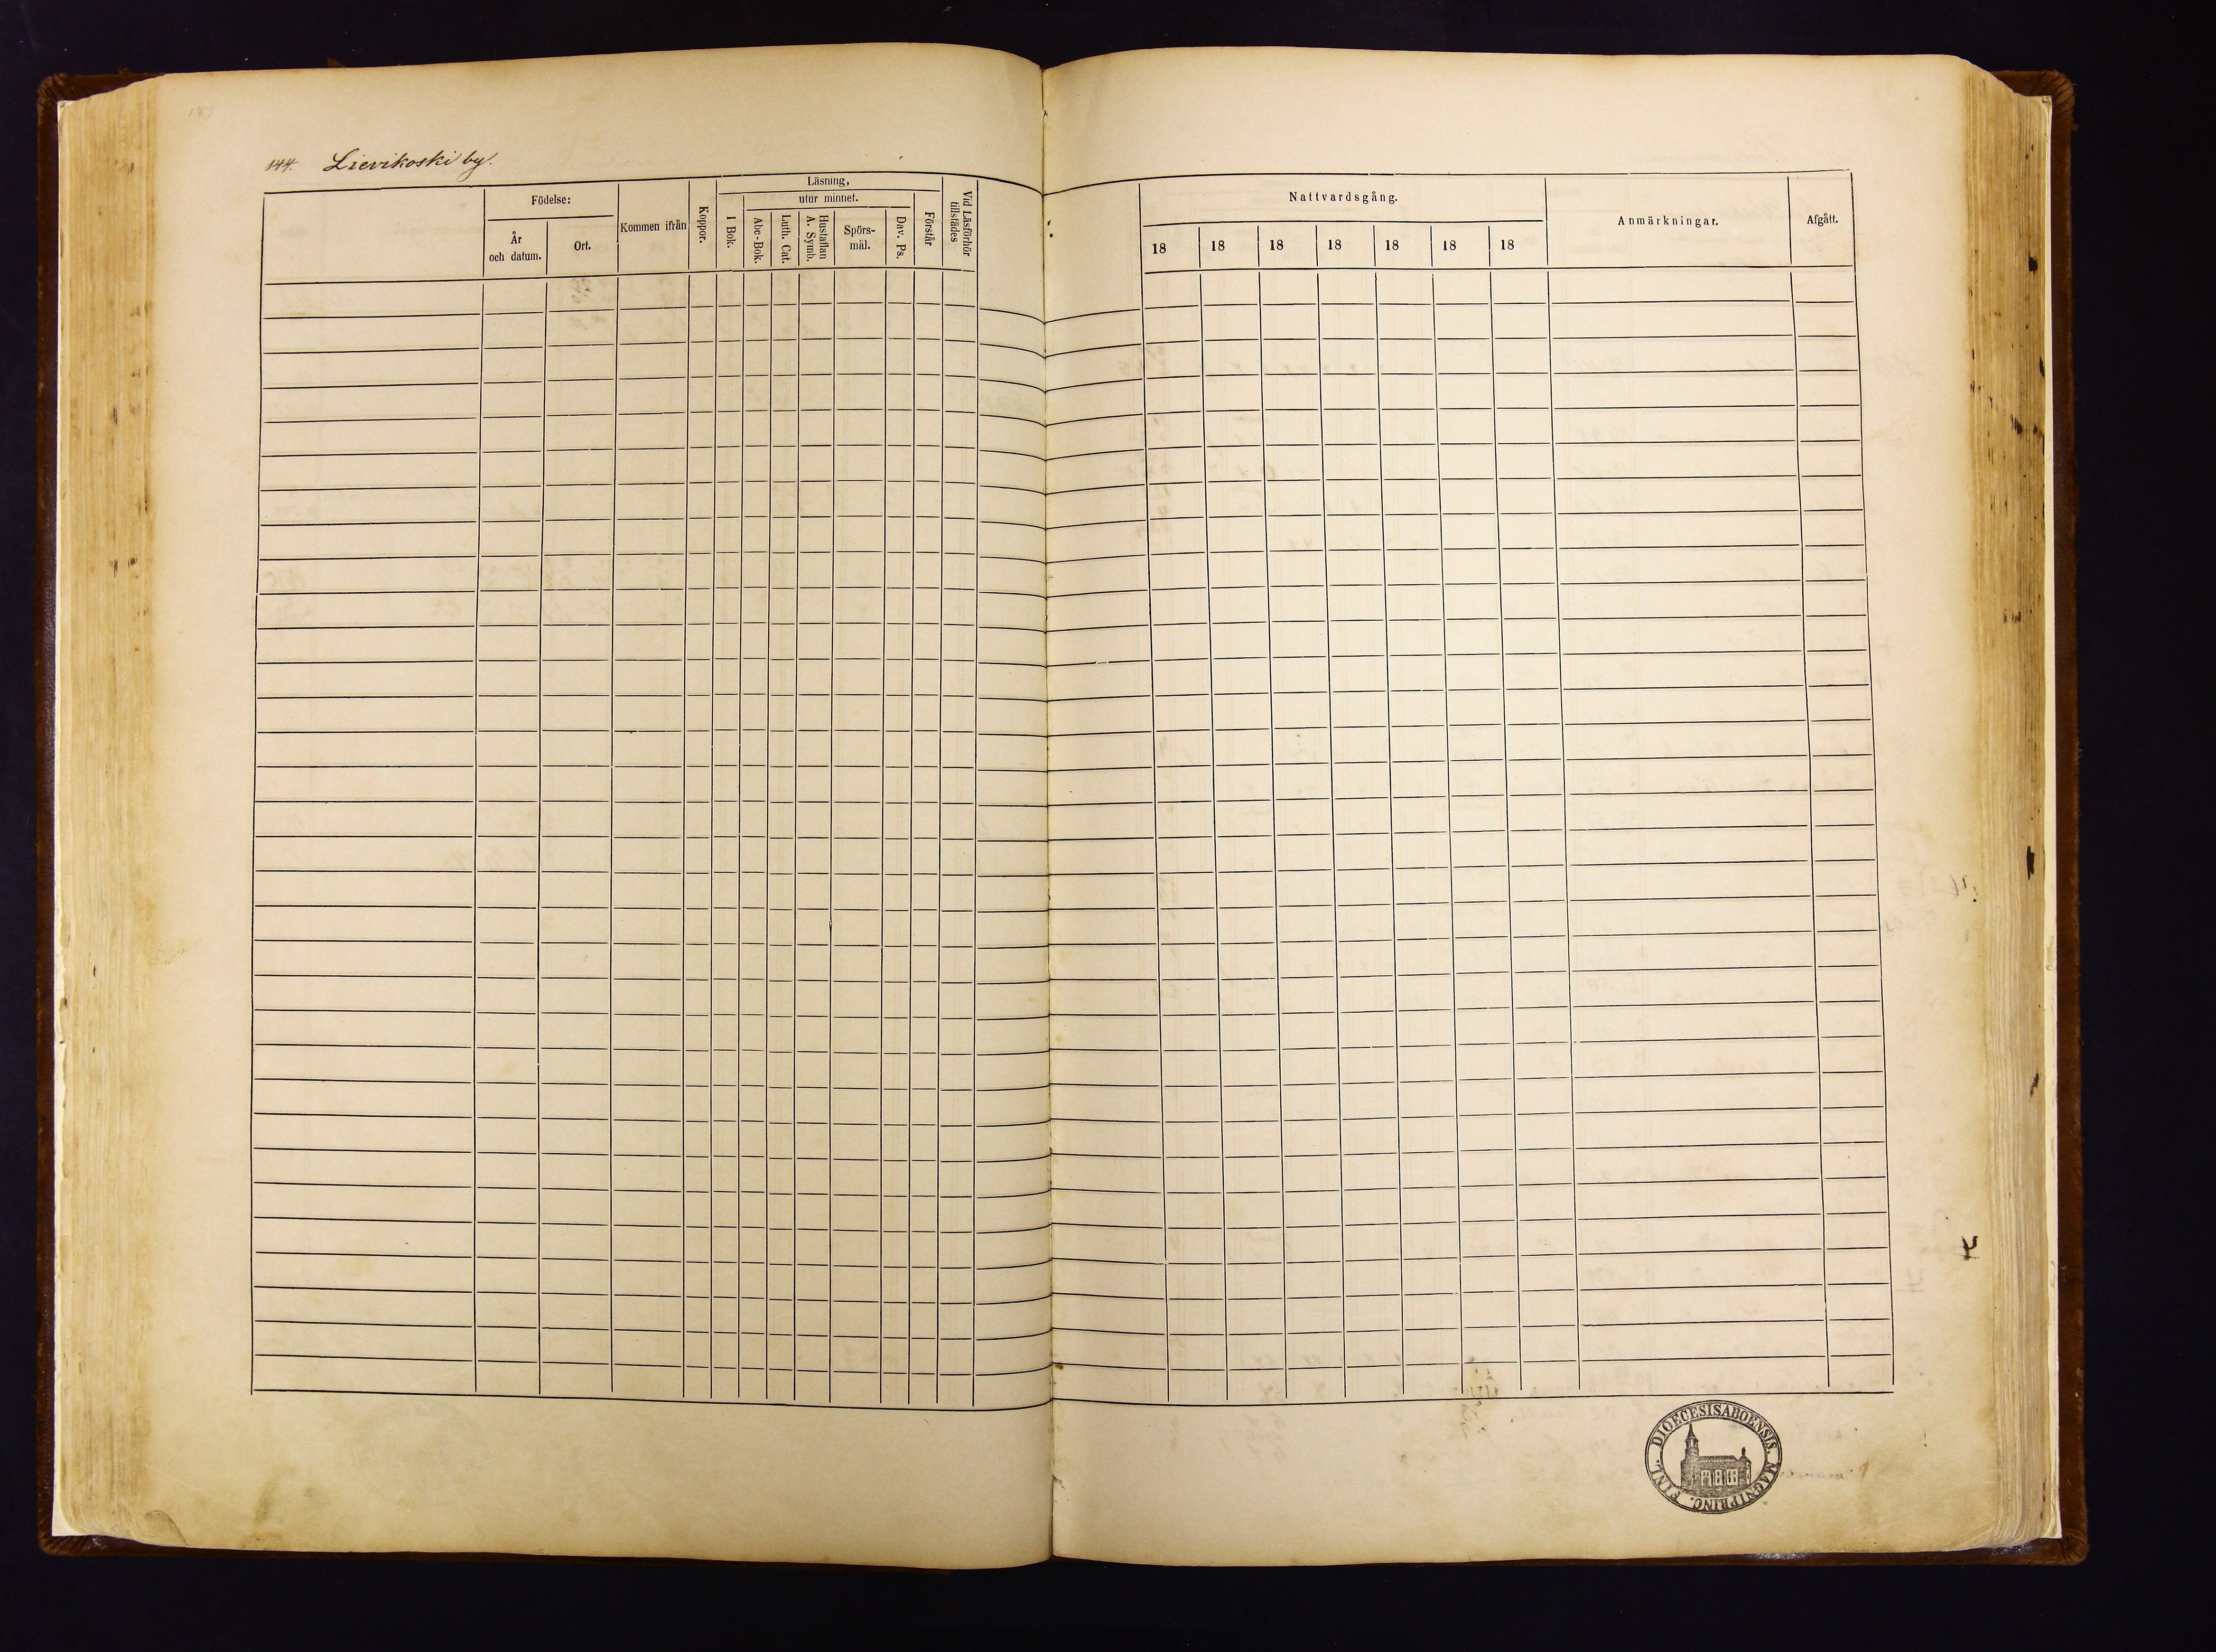 144. Lievikoski by.
Födelse:
År
och datum.
Ort.
Kommen ifrån
Koppor.
Läsning,
I Bok.
utur minnet.
Abc-Bok.
Luth. Cat.
Hustaflan
A. Symb.
Spörs-
mål.
Dav. Ps.
Förstår
Vid Läsförhör
tillstädes
Nattvardsgång.
18 18 18 18 18 18 18
Anmärkningar.
Afgått.
DIOECESIS ABOENSIS. MAGNI PRINC. FINL.